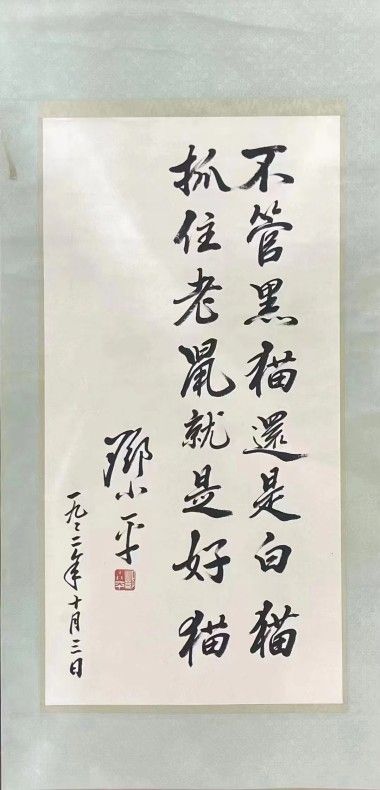 不管黑猫還是白猫
抓住老鼠就是好猫
鄧小平
一九々二年十月三日